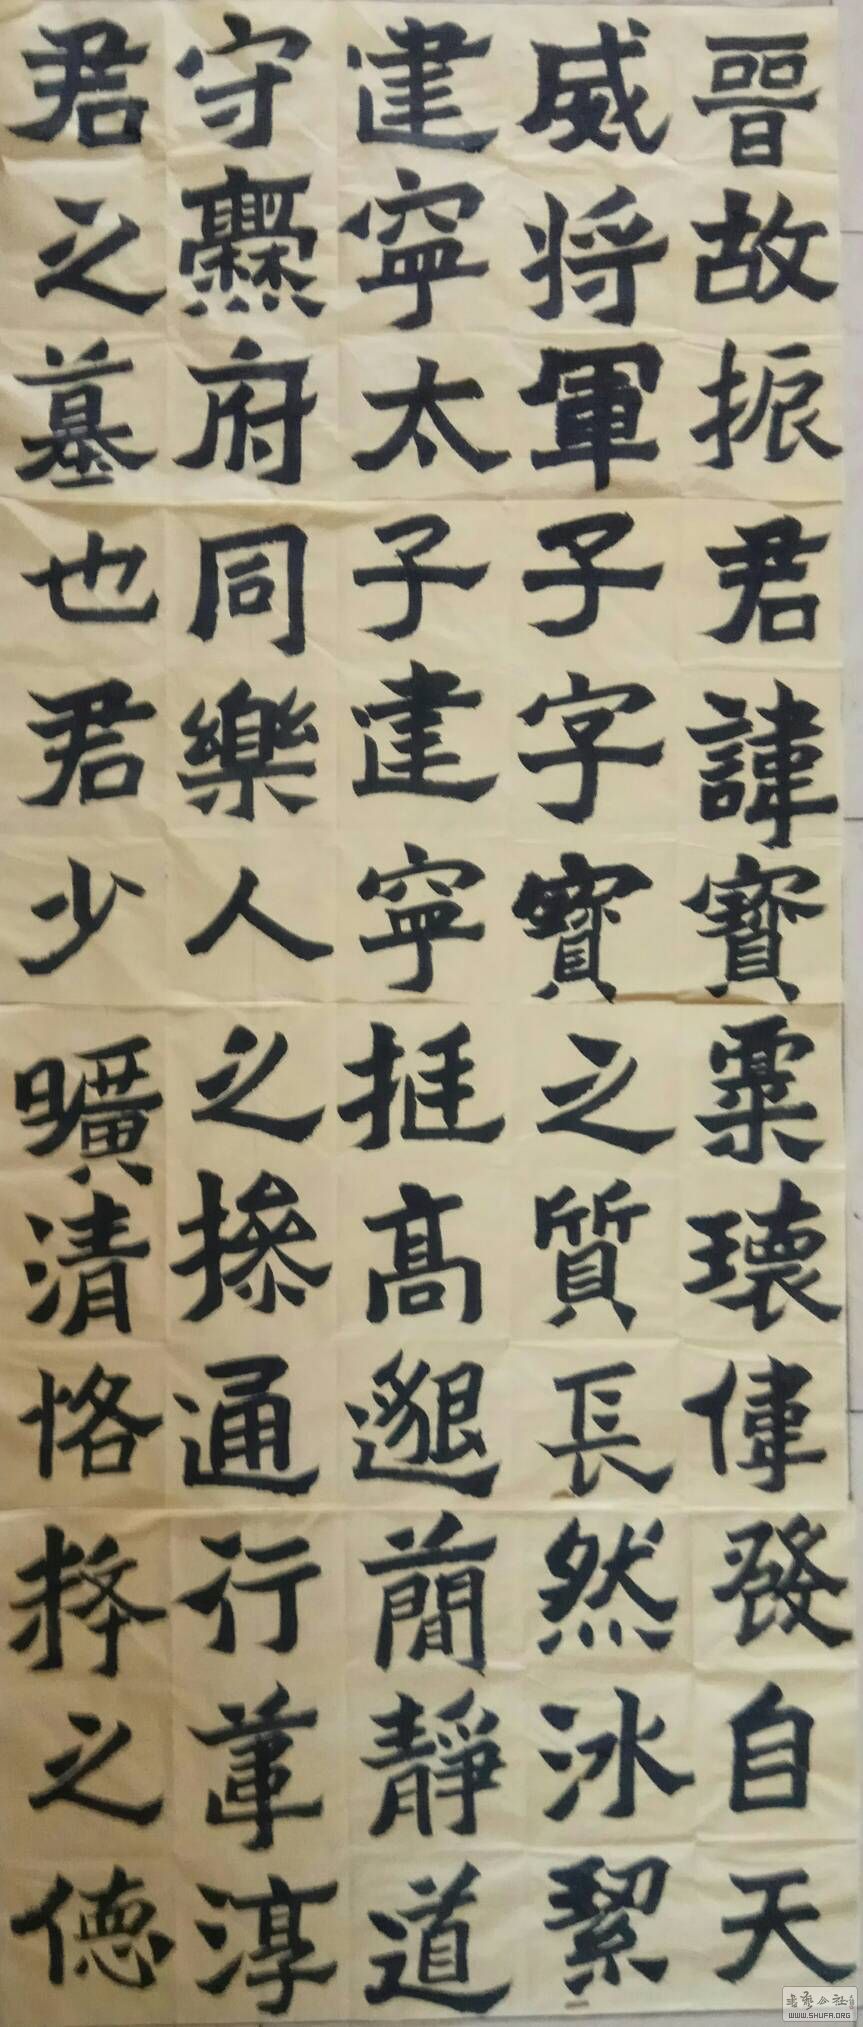 晉故振
威将軍
建寧太
守爨府
君之墓
君諱寶
子字寶
子建寧
同樂人
也君少
稟瓌偉
之質長
挺高邈
之操通
曠清恪
發自天
然冰絜
簡靜道
行葦淳
粹之德
书法公社
WWW.SHUFA.ORG